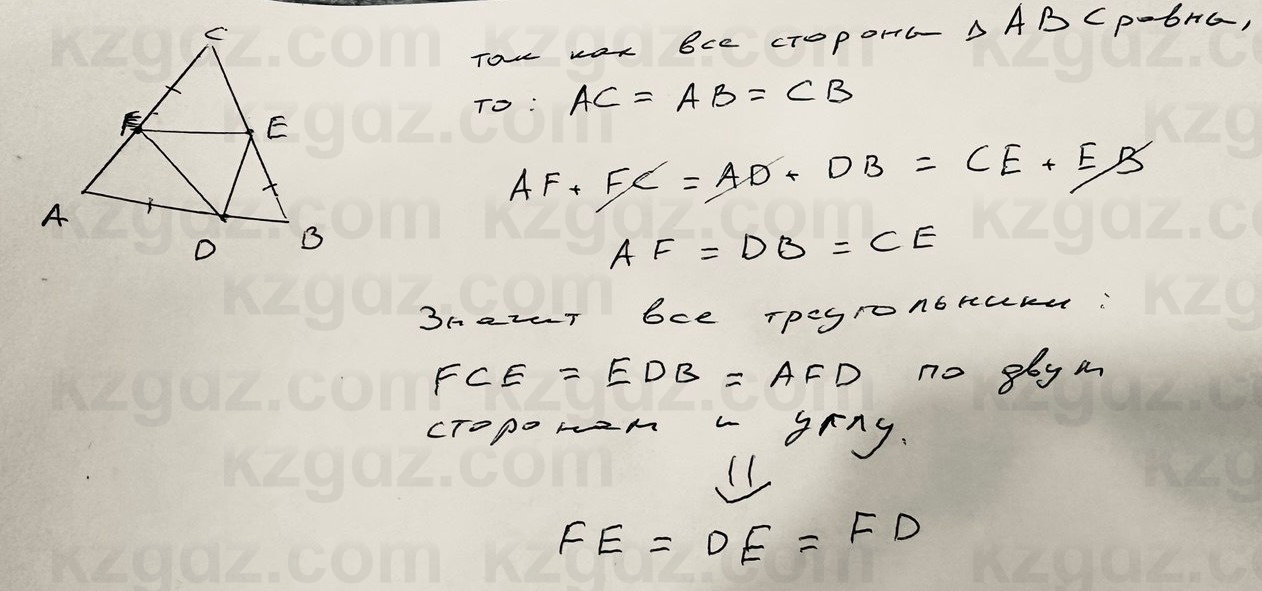 C
F
E
A
D
B
так как все стороны Δ ABC равны,
то: AC = AB = CB
AF + FC = AD + DB = CE + EB
AF = DB = CE
Значит все треугольники:
FCE = EDB = AFD по двум
сторонам и углу.
⇓
FE = DE = FD
kzgdz.com